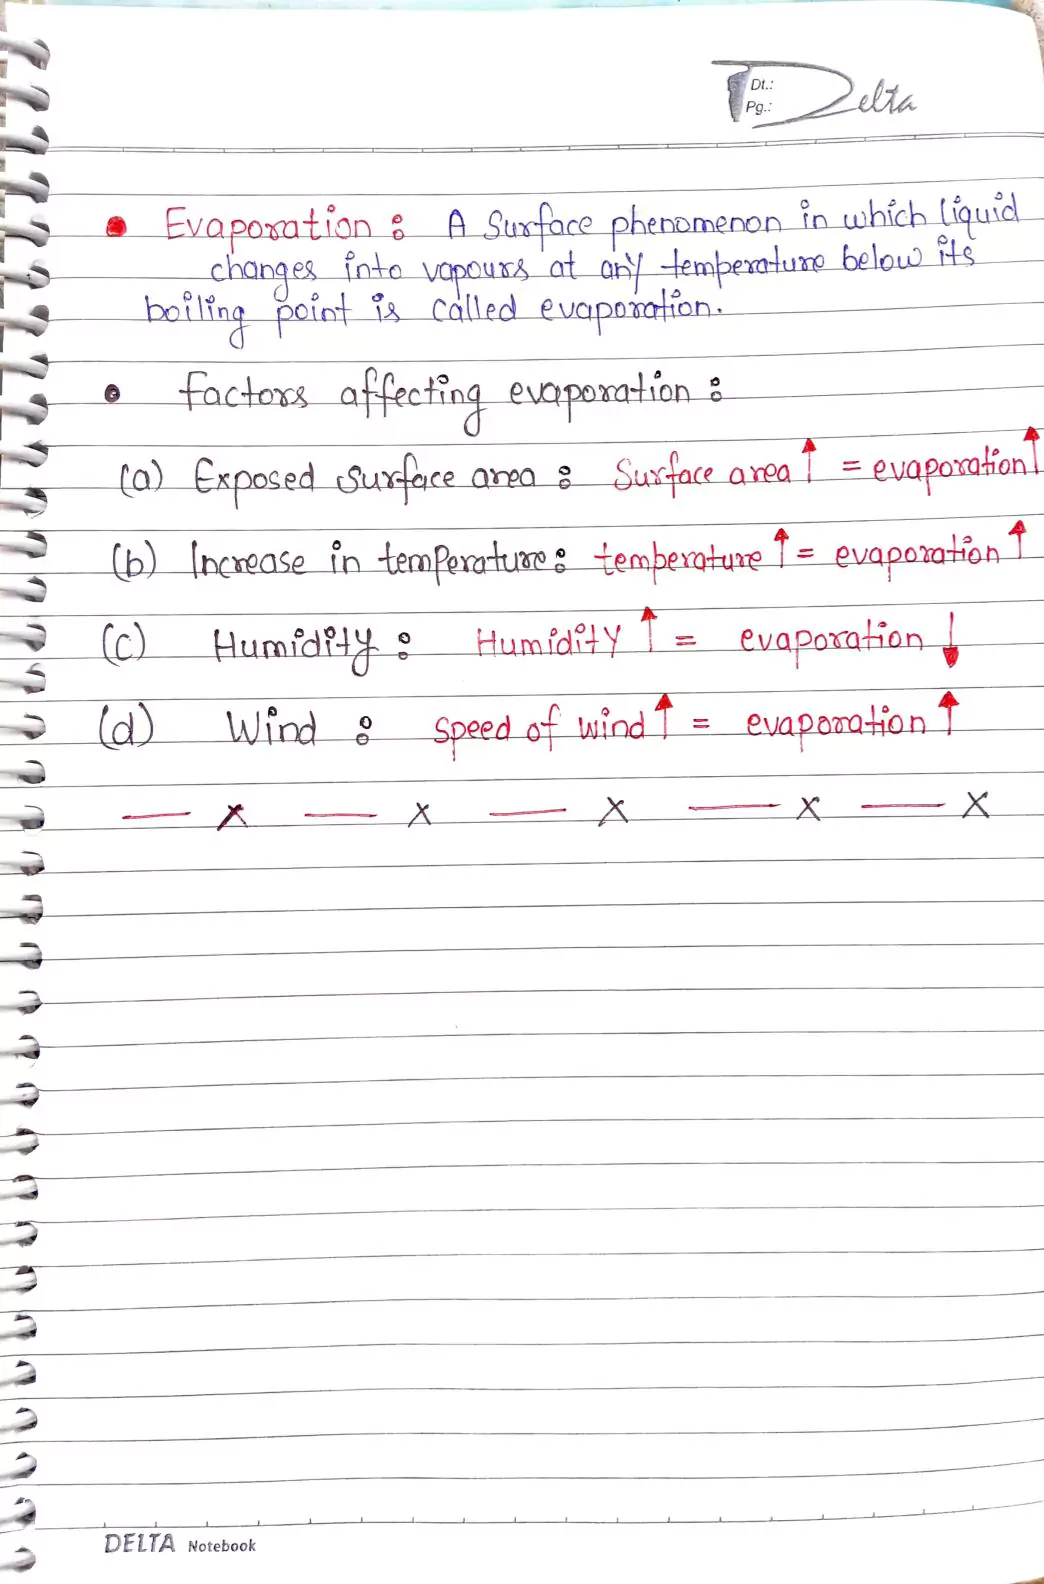 Dt.:
Pg.:
Delta
• Evaporation : A Surface phenomenon in which liquid
changes into vapours at any temperature below its
boiling point is called evaporation.
• factors affecting evaporation :
(a) Exposed surface area : Surface area ↑ = evaporation ↑
(b) Increase in temperature : temperature ↑ = evaporation ↑
(c) Humidity : Humidity ↑ = evaporation ↓
(d) Wind : speed of wind ↑ = evaporation ↑
— x — x — x — x — x
DELTA Notebook